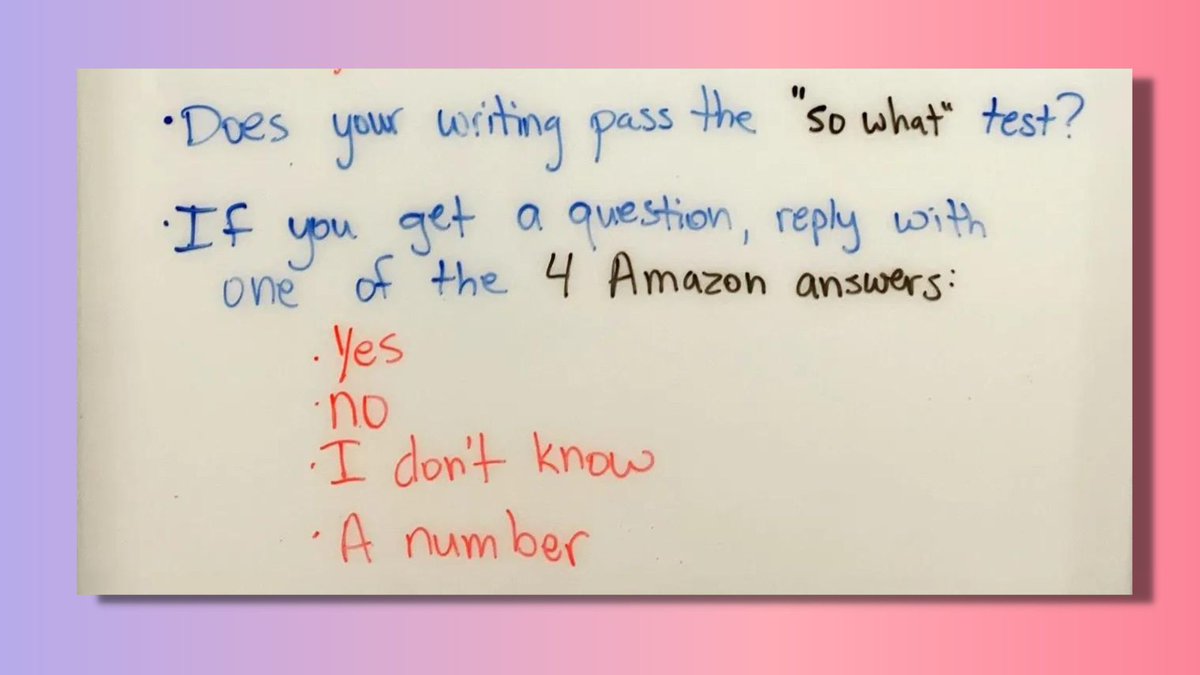 • Does your writing pass the "so what" test?
• If you get a question, reply with
one of the 4 Amazon answers:
• Yes
• no
• I don't know
• A number